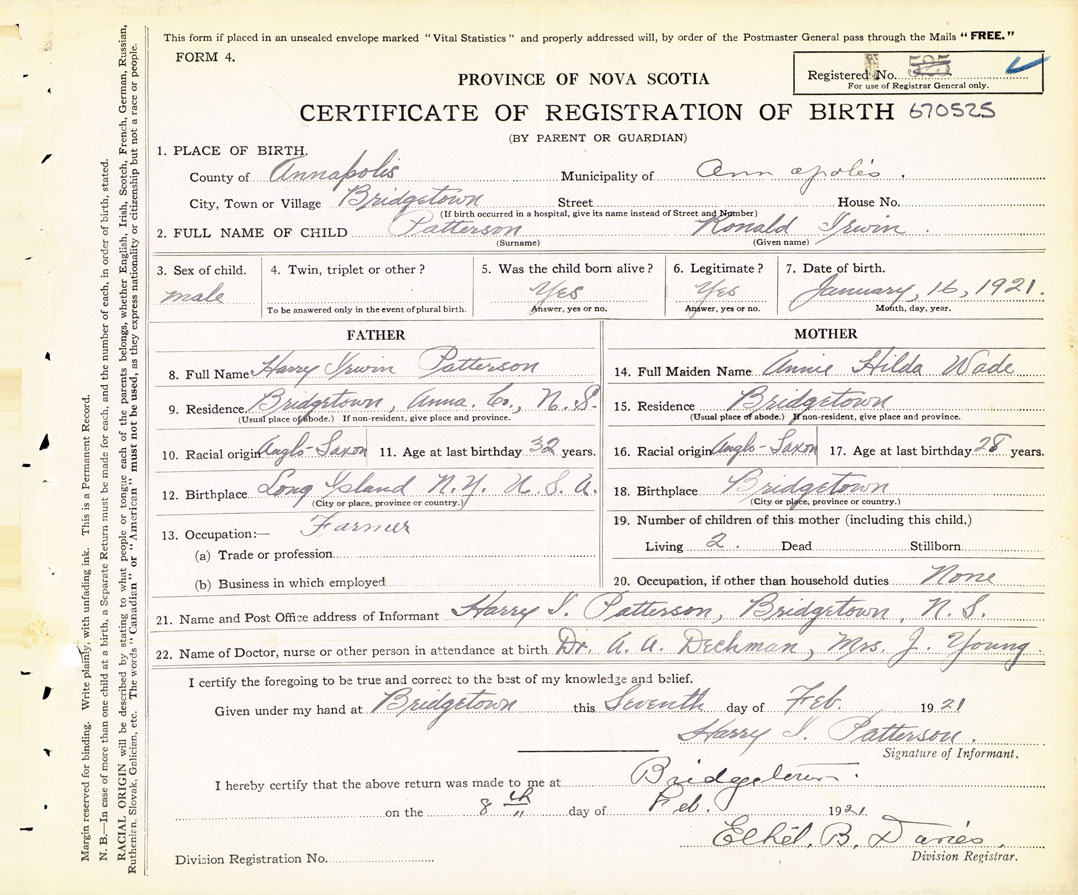 This form if placed in an unsealed envelope marked "Vital Statistics" and properly addressed will, by order of the Postmaster General pass through the Mails "FREE."
FORM 4.
Registered No. 525
For use of Registrar General only.
PROVINCE OF NOVA SCOTIA
CERTIFICATE OF REGISTRATION OF BIRTH 670525
(BY PARENT OR GUARDIAN)
1. PLACE OF BIRTH.
County of Annapolis Municipality of Annapolis.
City, Town or Village Bridgetown Street House No.
(If birth occurred in a hospital, give its name instead of Street and Number)
2. FULL NAME OF CHILD Patterson Ronald Irwin.
(Surname) (Given name)
3. Sex of child. 4. Twin, triplet or other? 5. Was the child born alive? 6. Legitimate? 7. Date of birth.
male Yes Yes January, 16, 1921.
To be answered only in the event of plural birth. Answer, yes or no. Answer, yes or no. Month, day, year.
FATHER
8. Full Name Harry Irwin Patterson
9. Residence. Bridgetown, Anna. Co., N.S.
(Usual place of abode.) If non-resident, give place and province.
10. Racial origin Anglo-Saxon 11. Age at last birthday 32 years.
12. Birthplace Long Island N.Y. U.S.A.
(City or place, province or country.)
13. Occupation:— Farmer
(a) Trade or profession
(b) Business in which employed
MOTHER
14. Full Maiden Name Annie Hilda Wade
15. Residence Bridgetown
(Usual place of abode.) If non-resident, give place and province.
16. Racial origin Anglo-Saxon 17. Age at last birthday 28 years.
18. Birthplace Bridgetown
(City or place, province or country.)
19. Number of children of this mother (including this child.)
Living 2. Dead Stillborn
20. Occupation, if other than household duties None
21. Name and Post Office address of Informant Harry I. Patterson, Bridgetown, N.S.
22. Name of Doctor, nurse or other person in attendance at birth Dr. A. A. Dechman, Mrs. J. Young.
I certify the foregoing to be true and correct to the best of my knowledge and belief.
Given under my hand at Bridgetown this Seventh day of Feb. 1921
Harry I. Patterson.
Signature of Informant.
I hereby certify that the above return was made to me at Bridgetown.
on the 8th day of Feb. 1921.
Ethel. B. Davies.
Division Registration No. Division Registrar.
Margin reserved for binding. Write plainly, with unfading ink. This is a Permanent Record.
N. B.—In case of more than one child at a birth, a Separate Return must be made for each, and the number of each, in order of birth, stated.
RACIAL ORIGIN will be described by stating to what people or tongue each of the parents belongs, whether English, Irish, Scotch, French, German, Russian,
Ruthenien, Slovak, Galician, etc. The words "Canadian" or "American" must not be used, as they express nationality or citizenship but not a race or people.